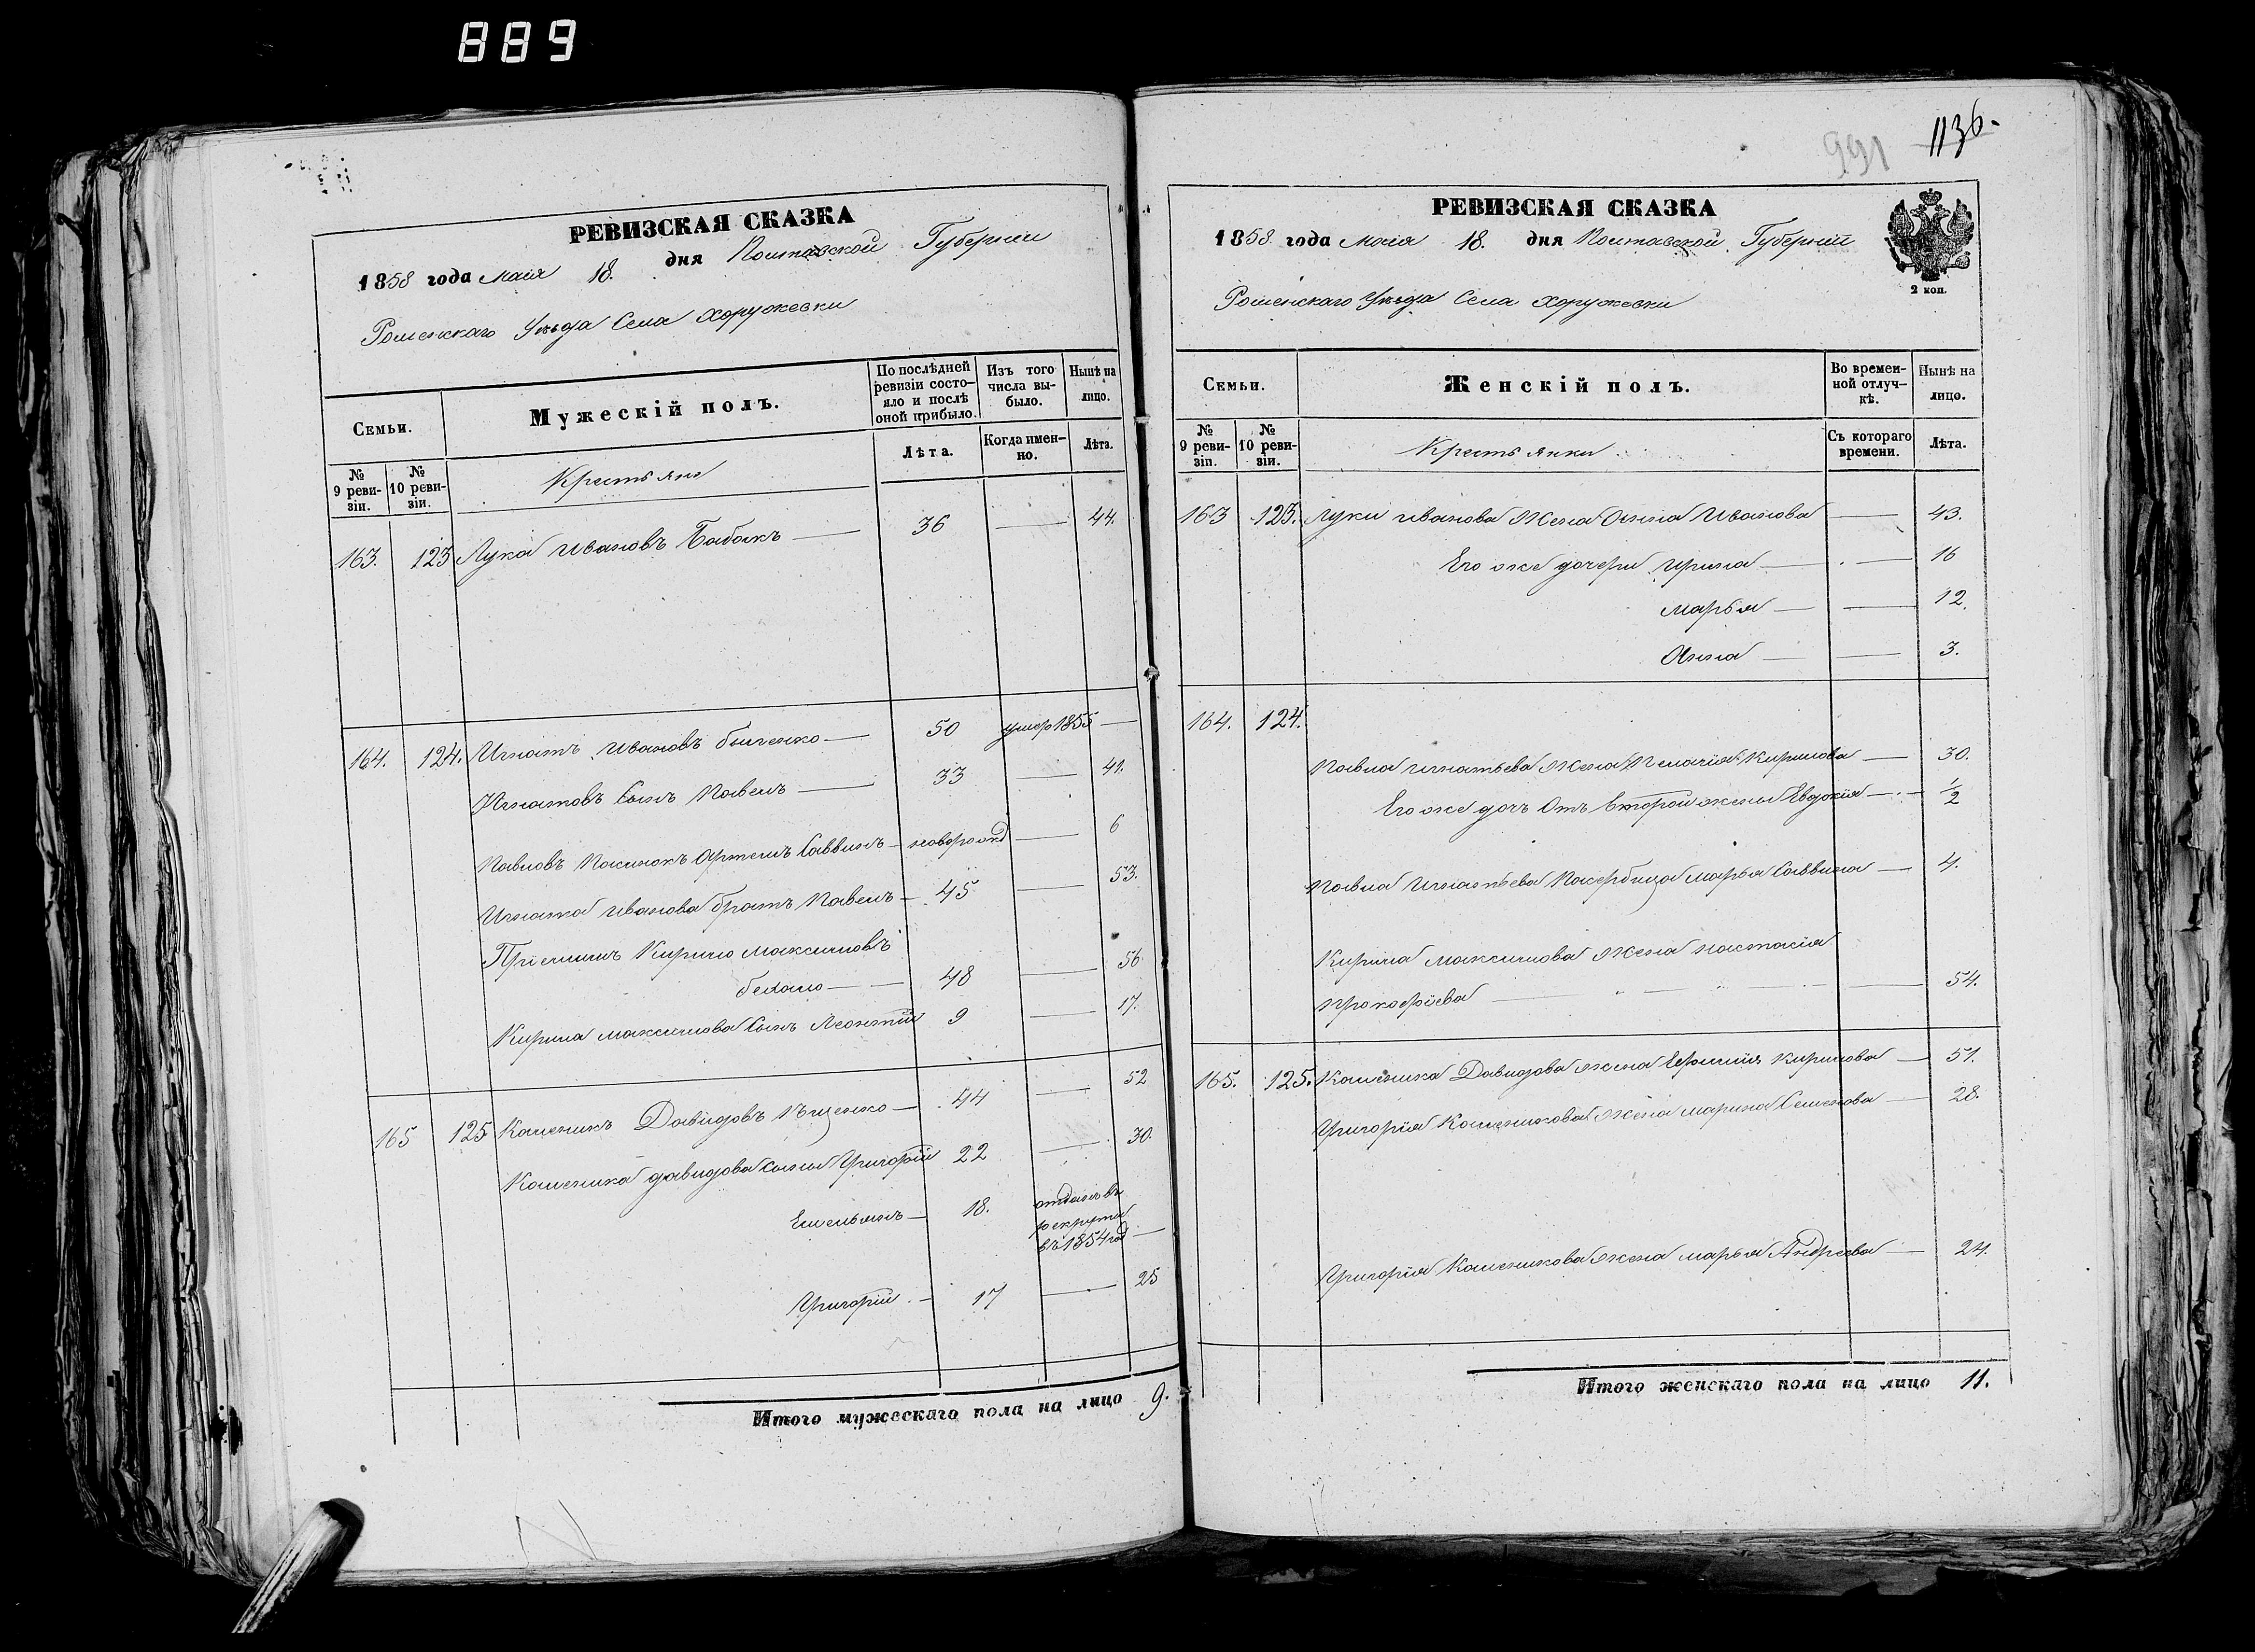 889
РЕВИЗСКАЯ СКАЗКА
1858 года Мая 18. дня Полтавской Губерніи
Роменскаго Уѣзда Села Хоружевки
Семьи.
Мужескій полъ.
По послѣдней ревизіи состояло и послѣ оной прибыло.
Изъ того числа выбыло.
Нынѣ на лицо.
№ 9 ревизіи.
№ 10 ревизіи.
Крестьяне
Лѣта.
Когда именно.
Лѣта.
163. 123 Лука Ивановъ Бабакъ — 36 — 44.
164. 124. Игнатъ Ивановъ — 50 умер 1855 —
Игнатовъ Сынъ Павелъ — 33 — 41.
Павловъ Пасинокъ Артемъ Саввинъ — новорожд — 6
Игната Иванова братъ Павелъ — 45 — 53.
Пріемишъ Кирило Максимовъ
48 — 56
Кирила Максимова Сынъ Леонтій 9 — 17.
165 125 Каленикъ Давидовъ Ищенко — 44 — 52
Каленика Давидова сыны Григорій 22 — 30.
Емельянъ — 18. отданъ въ
рекруты
въ 1854 год —
Григорій — 17 — 25
Итого мужескаго пола на лицо 9.
991 1136.
РЕВИЗСКАЯ СКАЗКА
1858 года Мая 18. дня Полтавской Губерніи
2 коп.
Роменскаго Уѣзда Села Хоружевки
Семьи.
Женскій полъ.
Во временной отлучкѣ.
Нынѣ на лицо.
№ 9 ревизіи.
№ 10 ревизіи.
Крестьянки
Съ котораго времени.
Лѣта.
163 123. Луки Иванова Жена Анна Иванова — 43.
Его же дочери Ирина — 16
Марья — 12.
Анна — 3.
164. 124.
Павла Игнатьева Жена Пелагія Кирилова — 30.
Его же дочь Отъ второй жены Евдокія — 1/2
Павла Игнатьева Пасербица Марья Саввина — 4.
Кирила Максимова Жена Настасія
Прокофіева — 54.
165. 125. Каленика Давидова жена Кирилова — 51.
Григорія Каленикова Жена Марина Семенова — 28.
Григорія Каленикова жена Марья Андреева — 24.
Итого женскаго пола на лицо 11.